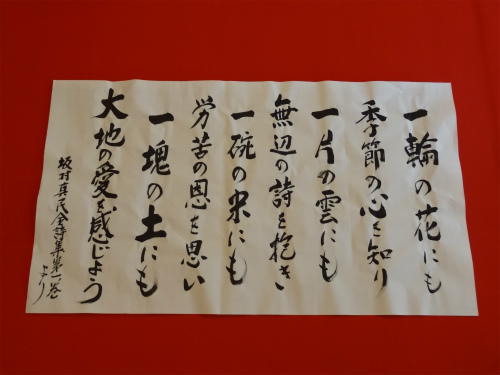 一輪の花にも
季節の心を知り
一片の雲にも
無辺の詩を抱き
一碗の米にも
労苦の恩を思い
一塊の土にも
大地の愛を感じよう
坂村真民全詩集第一巻
より